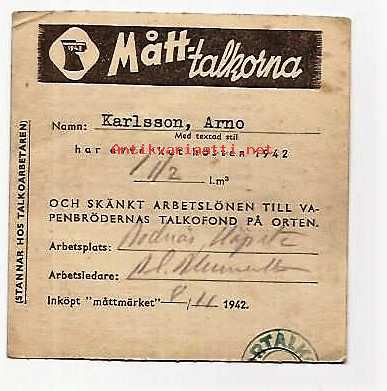 1942
Mått-talkorna
Namn: Karlsson, Arno
Med textad stil
har hösten 1942
1 1/2 l.m³
OCH SKÄNKT ARBETSLÖNEN TILL VA-
PENBRÖDERNAS TALKOFOND PÅ ORTEN.
Arbetsplats:
Arbetsledare:
Inköpt "måttmärket" 8/11 1942.
(STANNAR HOS TALKOARBETAREN)
Antikvariaatti.net